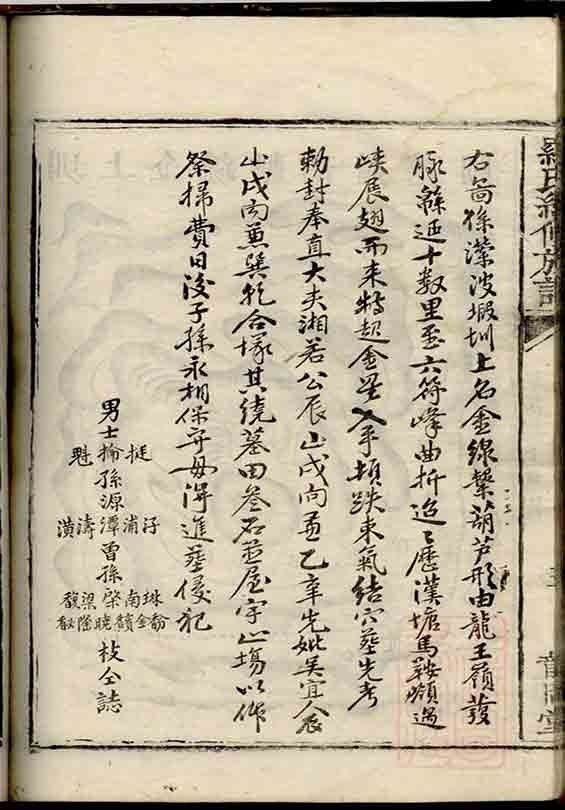 羅氏續修族譜
右圖係濚波塅圳上名金線繫葫芦形由龍王嶺發
脉綿延十数里至六符峰曲折迢〻歷漢塘馬鞍嶺過
峽展翅而來特起金星入手頓跌束氣結穴葬先考
勅封奉直大夫湘若公辰山戌向兼乙辛先妣吴宜人辰
山戌向兼巽乾合塚其繞墓田叁石並屋宇山塲以作
祭掃費日後子孫永相保守毋得進葬侵犯
男士掄 挺 魁
孫源潭 浦 濤 潢
曾孫啓 南 梁
枝仝誌